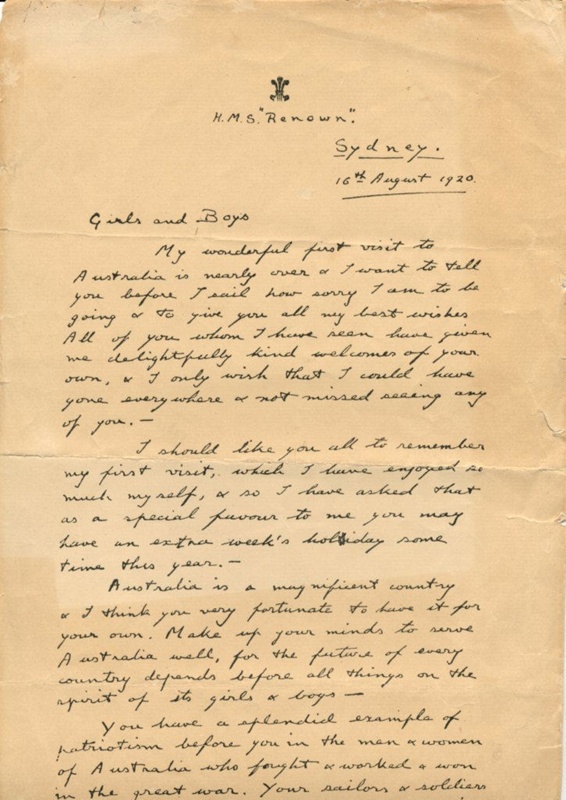 H.M.S. "Renown".
Sydney.
16th August 1920.
Girls and Boys
My wonderful first visit to
Australia is nearly over & I want to tell
you before I sail how sorry I am to be
going & to give you all my best wishes
All of you whom I have seen have given
me delightfully kind welcomes of your
own, & I only wish that I could have
gone everywhere & not missed seeing any
of you. —
I should like you all to remember
my first visit, which I have enjoyed so
much myself, & so I have asked that
as a special favour to me you may
have an extra week's holiday some
time this year. —
Australia is a magnificent country
& I think you very fortunate to have it for
your own. Make up your minds to serve
Australia well, for the future of every
country depends before all things on the
spirit of its girls & boys —
You have a splendid example of
patriotism before you in the men & women
of Australia who fought & worked & won
in the great war. Your sailors & soldiers